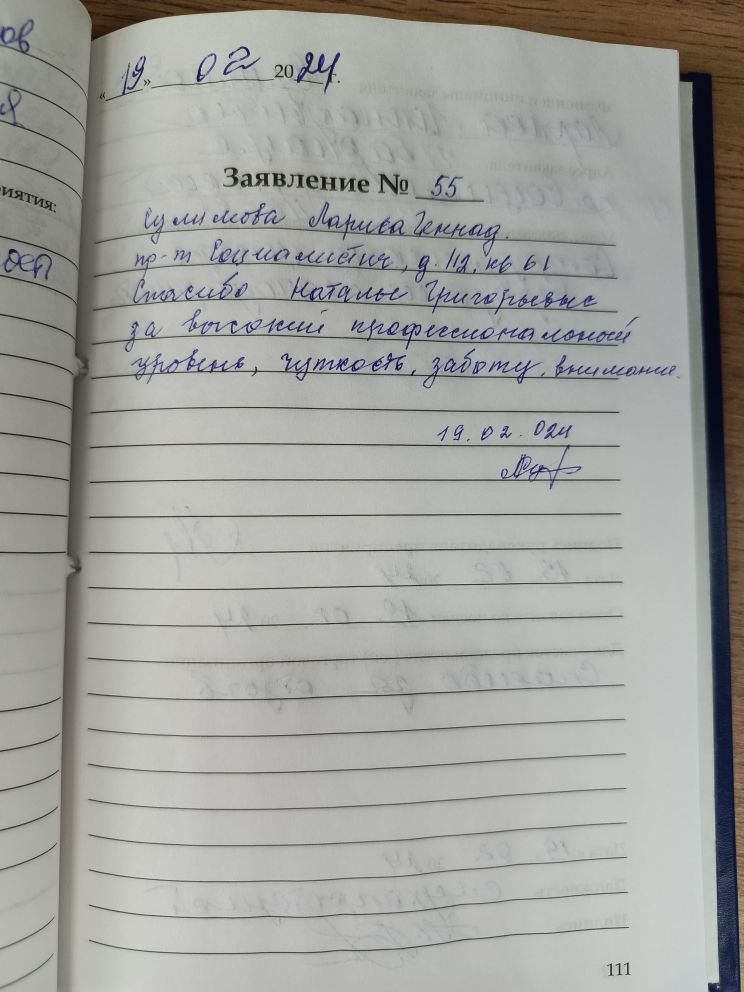 ов
я
риятия:
« 19 » 02 2024 г.
Заявление № 55
Сулимова Лариса Геннад.
пр-т Социалистич, д. 112, кв 61
Спасибо Наталье Григорьевне
за высокий профессиональный
уровень, чуткость, заботу, внимание.
19.02.024
111